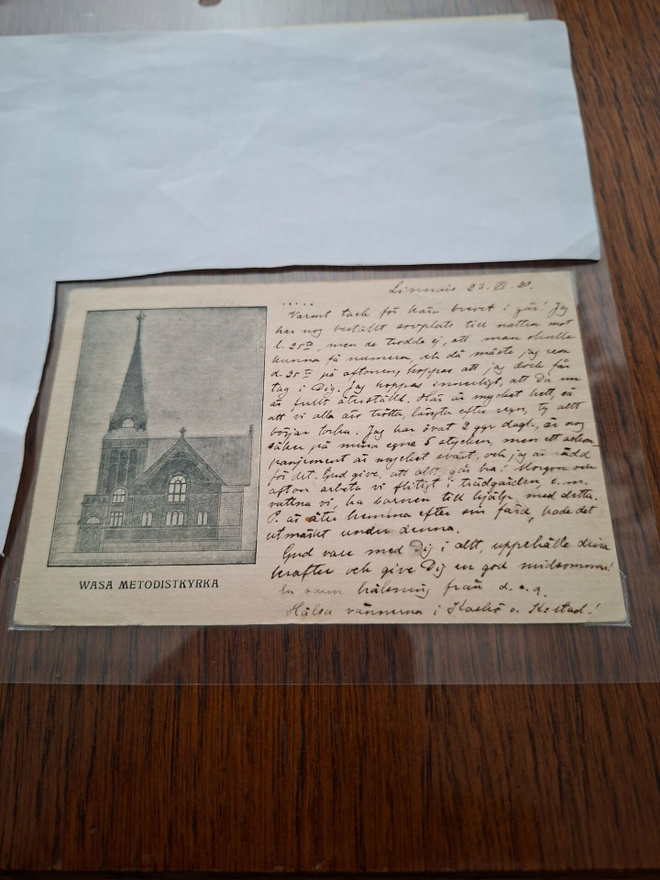 Linnais 23. VI. 20.
Varmt tack för kära brevet i går! Jag
har nog beställt sovplats till natten mot
d. 25te, men de trodde ej, att man skulle
kunna få nummer, och då måste jag resa
d. 25te på aftonen, hoppas att jag doch får
tag i Dig. Jag hoppas innerligt, att Du nu
är fullt återställd. Här är mycket hett, så
att vi alla äro trötta, längta efter regn, ty allt
börjar torka. Jag har övat 2 ggr dagl., är nog
säker på mina egna 5 stycken, men ett
är mycket svårt, och jag är rädd
för det. Gud give, att allt går bra! Morgon och
afton arbeta vi flitigt i trädgården, e.m.
vattna vi, ha barnen till hjälp med detta.
P. är åter hemma efter sin färd, hade det
utmärkt under denna.
Gud vare med Dig i allt, uppehålle dina
krafter och give Dig en god midsommar!
En varm hälsning från d. e. g.
Hälsa vännerna i Kaskö o. K:stad!
WASA METODISTKYRKA